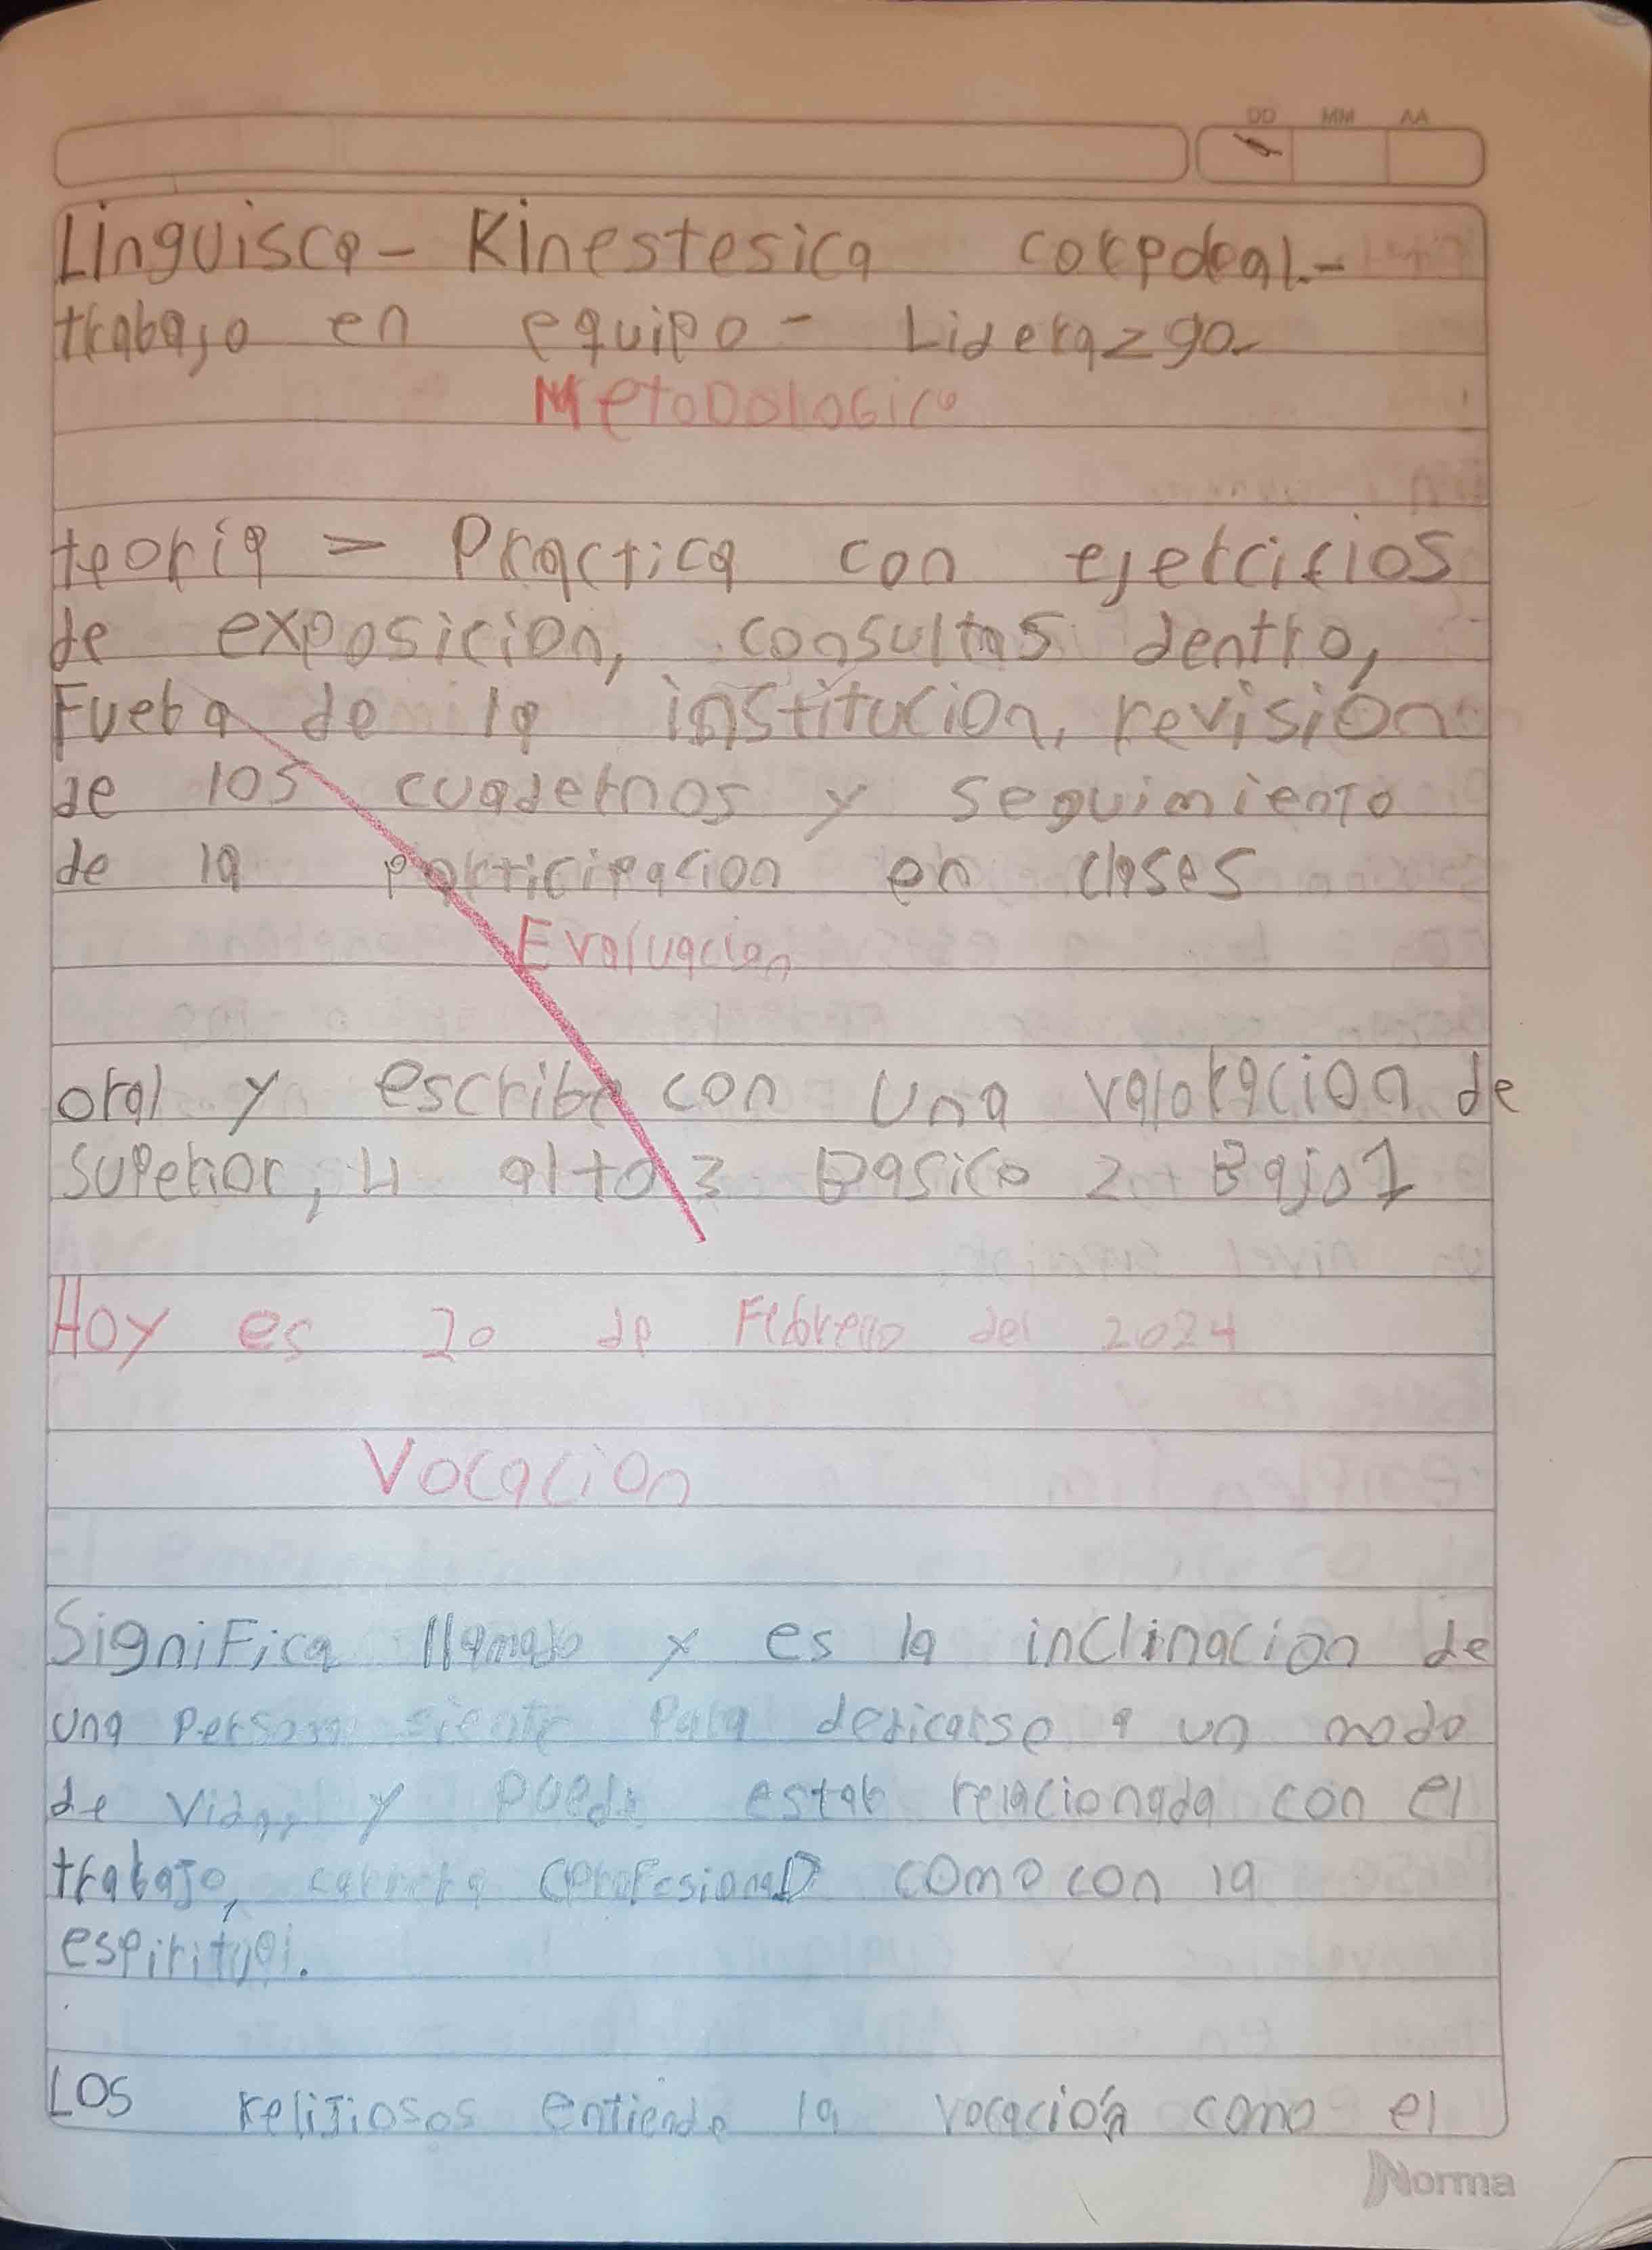 DD MM AA
Linguisca - Kinestesica corpdral.-
trabajo en equipo - Liderazgo-
Metodologico
teoria = Practica con ejercicios
de exposicion, consultas dentro,
Fuera de la institucion, revision
de los cuadernos y seguimiento
de la participacion en clases
Evaluacion
oral y escribe con una valoracion de
superior, 4 alto 3 Basico 2 Bajo 1
Hoy es 20 de Febrero del 2024
Vocacion
Significa llamado y es la inclinacion de
una persona siente para dedicarse a un modo
de vida, y puede estar relacionada con el
trabajo, carrera (profesional) como con la
espiritual.
Los relijiosos entiende la vocación como el
Norma